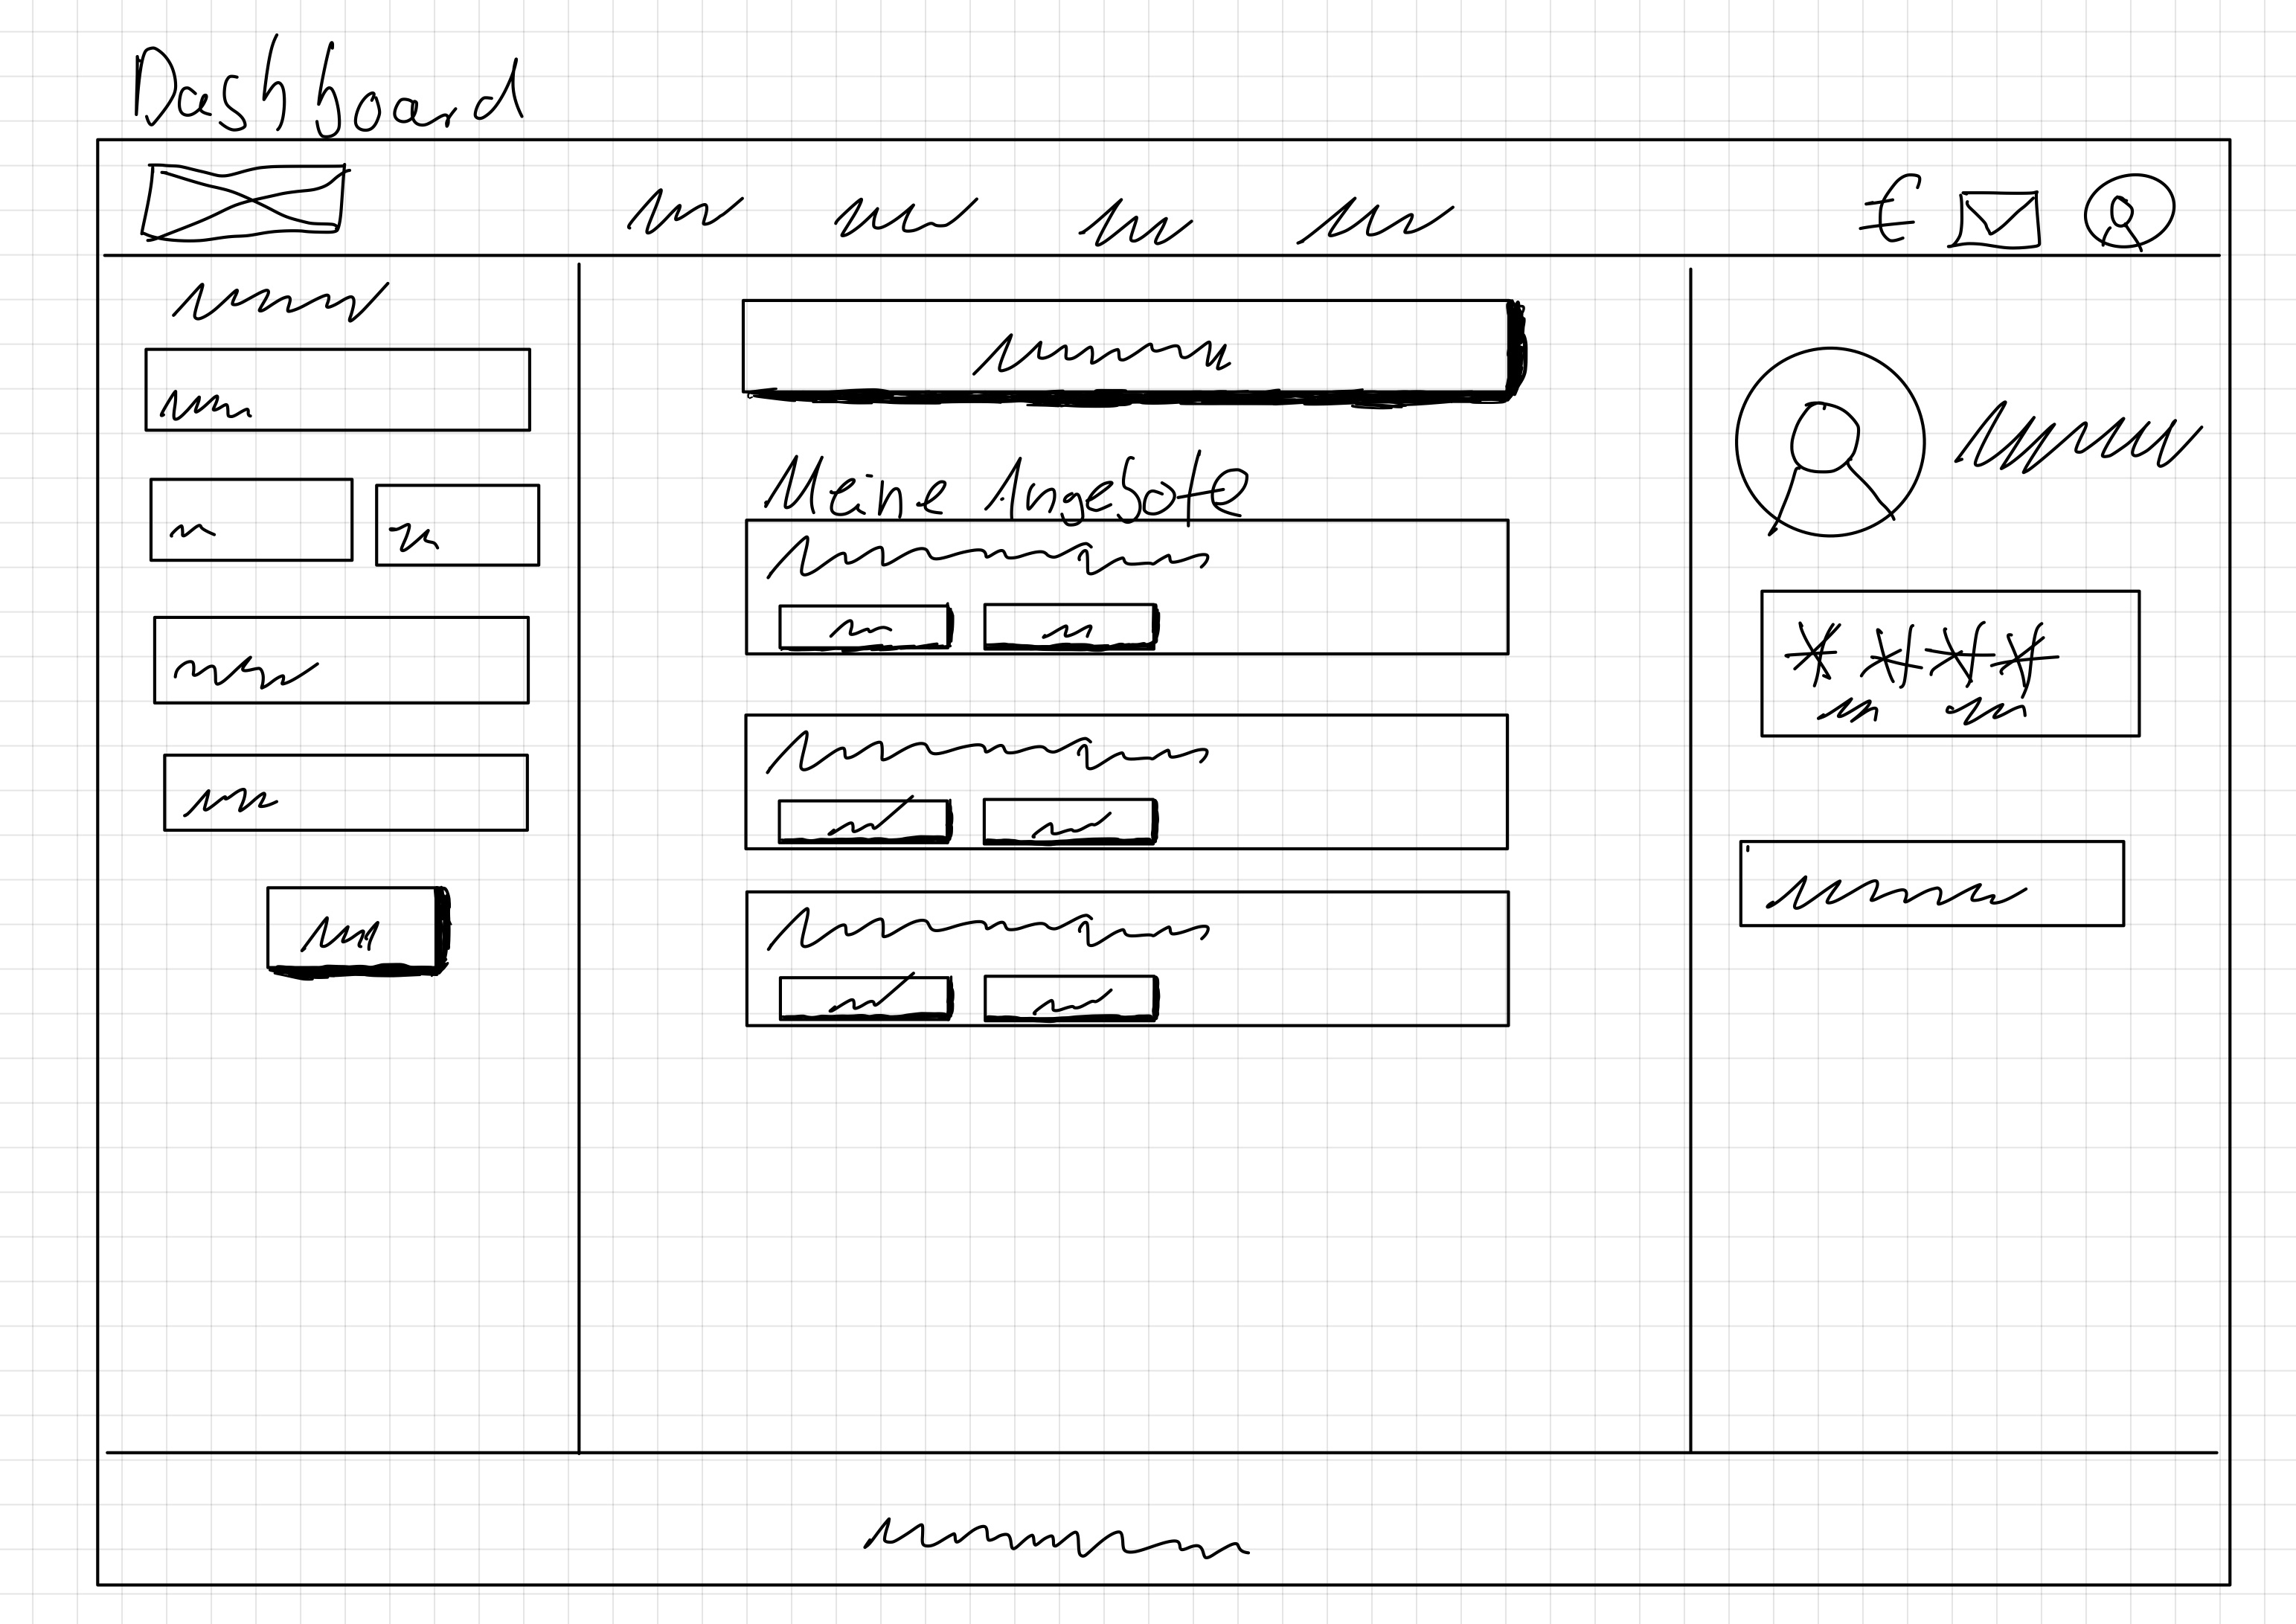 Dashboard
Meine Angebote